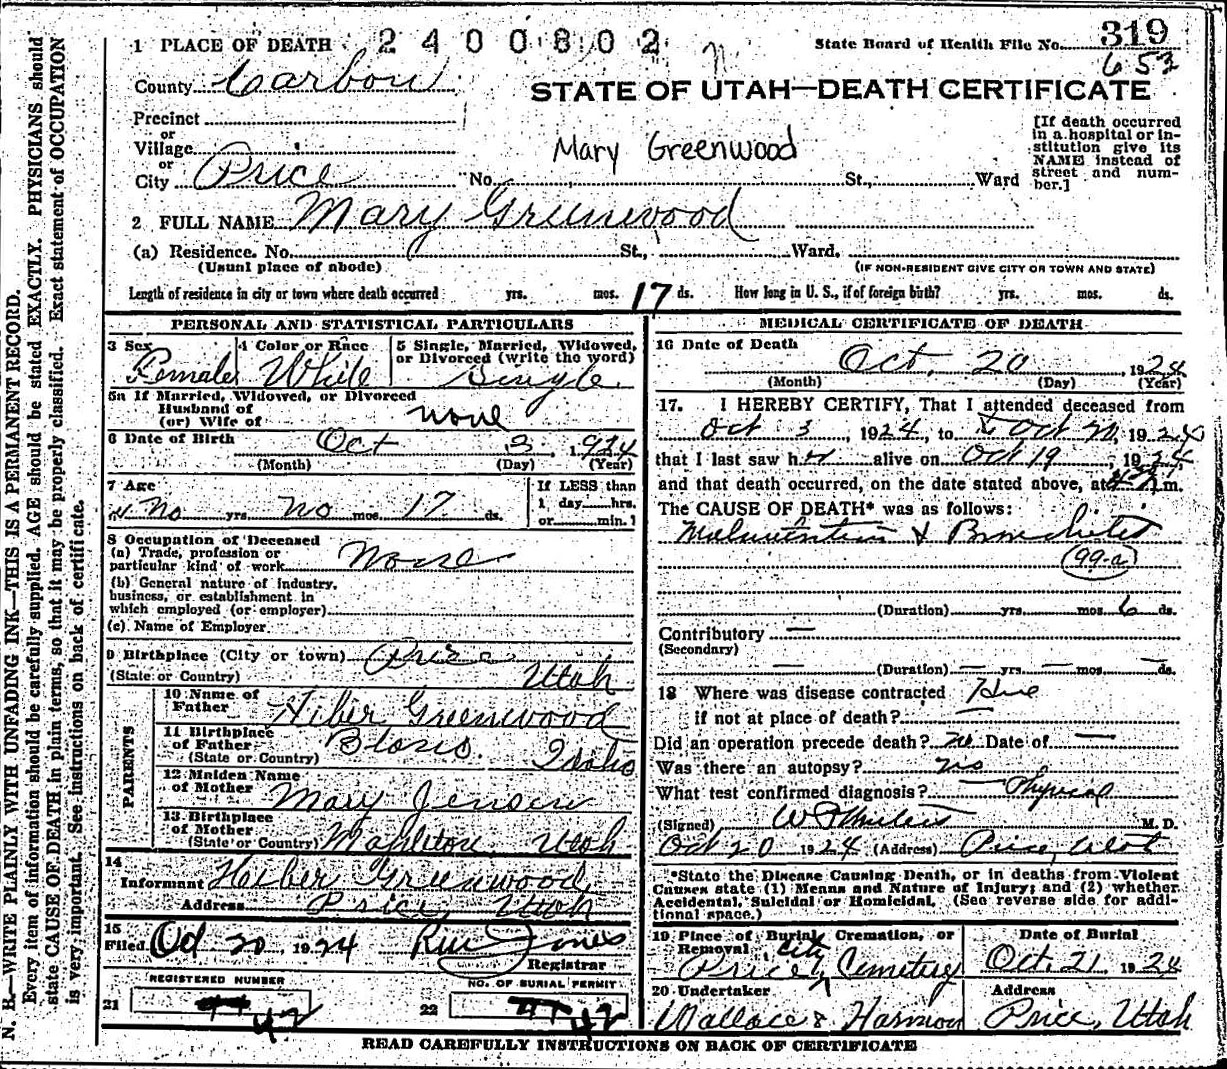 1 PLACE OF DEATH 2400802 State Board of Health File No. 319
653
County Carbon STATE OF UTAH—DEATH CERTIFICATE
Precinct
or
Village
or
City Price No. St., Ward
Mary Greenwood
[If death occurred
in a hospital or in-
stitution give its
NAME instead of
street and num-
ber.]
2 FULL NAME Mary Greenwood
(a) Residence. No. St., Ward.
(Usual place of abode) (IF NON-RESIDENT GIVE CITY OR TOWN AND STATE)
Length of residence in city or town where death occurred yrs. mos. 17 ds. How long in U. S., if of foreign birth? yrs. mos. ds.
PERSONAL AND STATISTICAL PARTICULARS
3 Sex Female 4 Color or Race White 5 Single, Married, Widowed,
or Divorced (write the word) Single
5a If Married, Widowed, or Divorced
Husband of
(or) Wife of none
6 Date of Birth Oct 3, 1924
(Month) (Day) (Year)
7 Age No yrs. No mos. 17 ds.
If LESS than
1 day hrs.
or min.?
8 Occupation of Deceased
(a) Trade, profession or
particular kind of work None
(b) General nature of industry,
business, or establishment in
which employed (or employer)
(c) Name of Employer
9 Birthplace (City or town) Price
(State or Country) Utah
PARENTS
10 Name of
Father Hiber Greenwood
11 Birthplace
of Father
(State or Country) Idaho
12 Maiden Name
of Mother Mary Jensen
13 Birthplace
of Mother
(State or Country) Mapleton, Utah
14
Informant Heber Greenwood
Address Price, Utah
15
Filed Oct 20 1924 Jones
Registrar
REGISTERED NUMBER NO. OF BURIAL PERMIT
21 44 42 22 42
MEDICAL CERTIFICATE OF DEATH
16 Date of Death Oct. 20, 1924
(Month) (Day) (Year)
17. I HEREBY CERTIFY, That I attended deceased from
Oct 3, 1924, to Oct 20, 1924
that I last saw her alive on Oct 19, 1924,
and that death occurred, on the date stated above, at m.
The CAUSE OF DEATH* was as follows:
Malnutrition & Bronchitis
99-a
(Duration) yrs. mos. 6 ds.
Contributory —
(Secondary)
— (Duration) — yrs. — mos. — ds.
18 Where was disease contracted
if not at place of death? —
Did an operation precede death? no Date of —
Was there an autopsy? no
What test confirmed diagnosis? Physical
(Signed) M. D.
Oct 20 1924 (Address) Price, Utah
*State the Disease Causing Death, or in deaths from Violent
Causes state (1) Means and Nature of Injury; and (2) whether
Accidental, Suicidal or Homicidal. (See reverse side for addi-
tional space.)
19 Place of Burial, Cremation, or
Removal Price City Cemetery
Date of Burial
Oct. 21 1924
20 Undertaker
Wallace & Harmon
Address
Price, Utah
READ CAREFULLY INSTRUCTIONS ON BACK OF CERTIFICATE
N. B.—WRITE PLAINLY WITH UNFADING INK—THIS IS A PERMANENT RECORD.
Every item of information should be carefully supplied. AGE should be stated EXACTLY. PHYSICIANS should
state CAUSE OF DEATH in plain terms, so that it may be properly classified. Exact statement of OCCUPATION
is very important. See instructions on back of certificate.